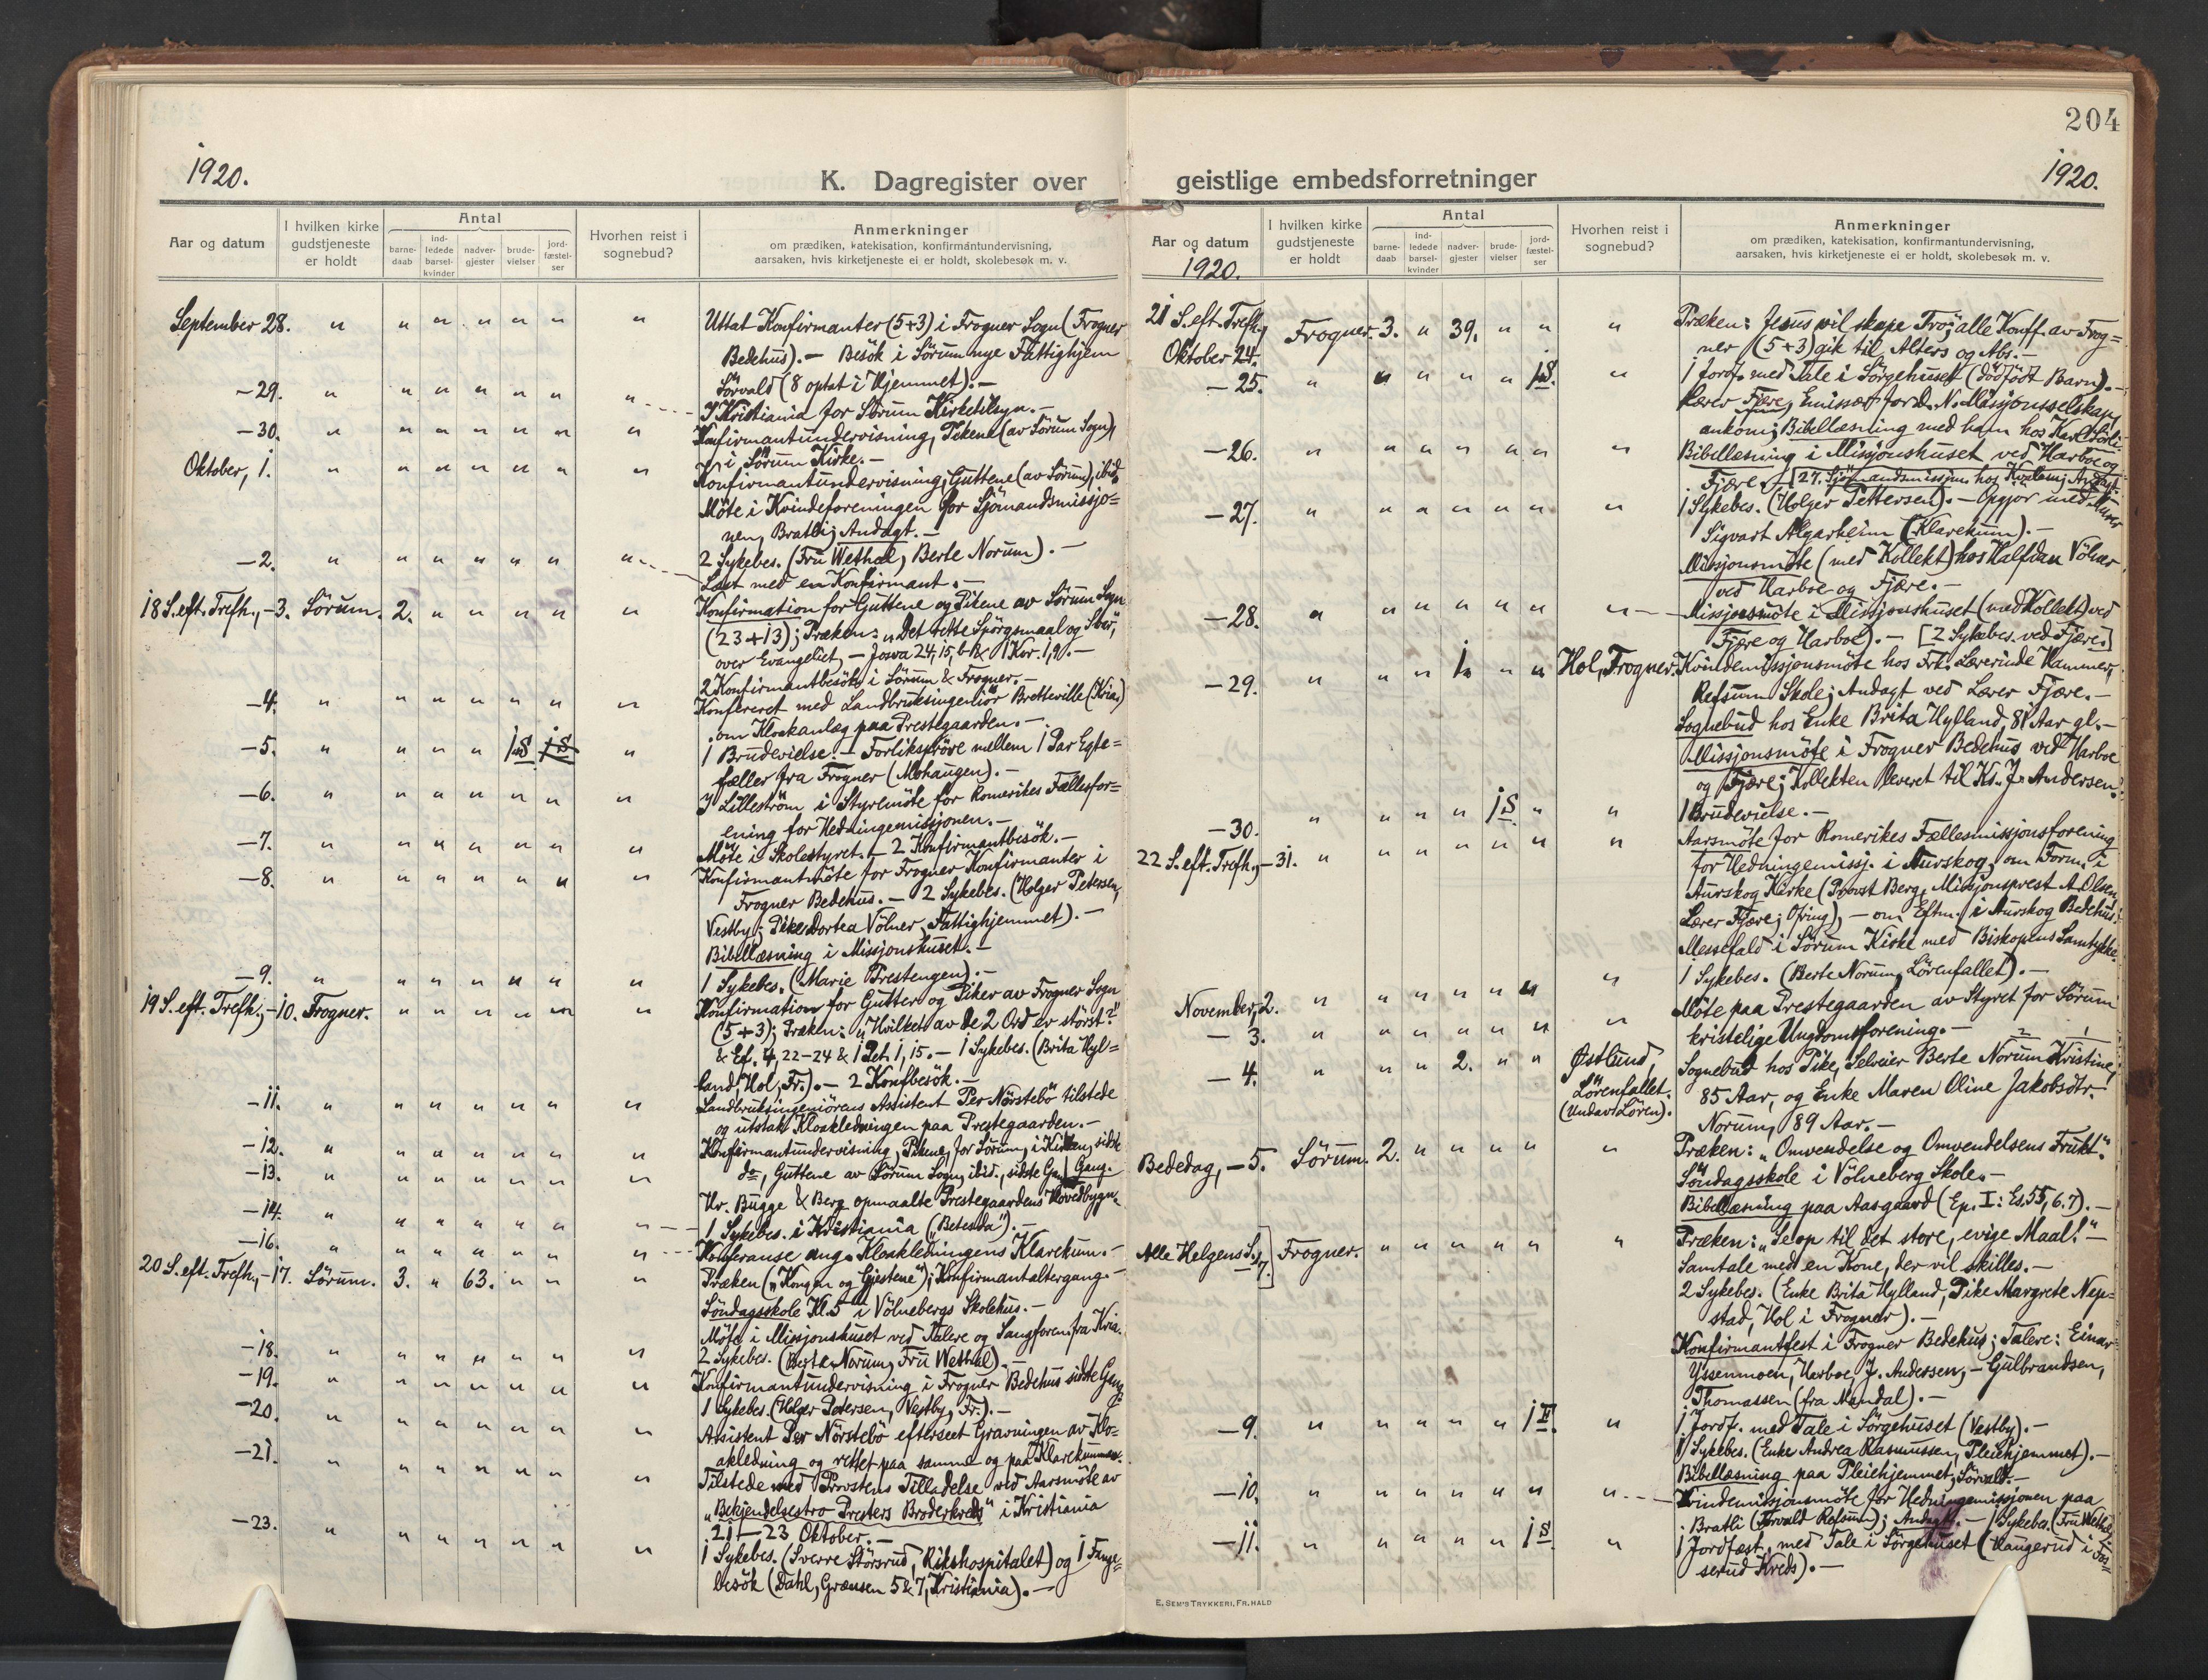 204
1920.
K. Dagregister over
Aar og datum
I hvilken kirke
gudstjeneste
er holdt
Antal
barne-
daab
ind-
ledede
barsel-
kvinder
nadver-
gjester
brude-
vielser
jord-
fæstel-
ser
Hvorhen reist i
sognebud?
Anmerkninger
om prædiken, katekisation, konfirmantundervisning,
aarsaken, hvis kirketjeneste ei er holdt, skolebesøk m. v.
September 28. " " " " " " " Uttat Konfirmanter (5+3) i Frogner Sogn (Frogner
Bedehus). — Besök i Sörum nye Fattighjem
Sörvald (8 optat i Hjemmet). —
—29. " " " " " " " I Kristiania for Sörum Kirketilsyn. —
—30. " " " " " " " Konfirmantundervisning, Pikene (av Sörum Sogn),
i Sörum Kirke. —
Oktober, 1. " " " " " " " Konfirmantundervisning, Guttene (av Sörum), ibid.
Möte i Kvindeforeningen for Sjömandsmissjo=
nen, Bratli; Andagt. —
—2. " " " " " " " 2 Sykebes. (Fru Wethal, Berte Norum). —
Læst med en Konfirmant. —
18 S. eft. Trefh., —3. Sörum. 2. " " " " " Konfirmation for Guttene og Pikene av Sörum Sogn
(23+13); Præken: „Det rette Spörgsmaal og Svar,
over Evangeliet, — Josva 24, 15, b & 1 Kor. 1, 9. —
2 Konfirmantbesök i Sörum & Frogner. —
—4. " " " " " " " Konfereret med Landbruksingeniör Bretteville (Kria.)
om Kloakanlæg paa Prestegaarden. —
—5. " " " " 1 S. " 1 Brudevielse. — Forlikspröve mellem 1 Par Egte=
fæller fra Frogner (Mohaugen). —
—6. " " " " " " " I Lilleström i Styremöte for Romerikes Fællesfor=
ening for Hedningemissjonen. —
—7. " " " " " " " Möte i Skolestyret. — 2 Konfirmantbesök. —
—8. " " " " " " " Konfirmantmöte for Frogner Konfirmanter i
Frogner Bedehus. — 2 Sykebes. (Holger Petersen,
Vestby; Pike Dortea Völner, Fattighjemmet). —
Bibellæsning i Missjonshuset. —
—9. " " " " " " " 1 Sykebes. (Marie Prestengen). —
19 S. eft. Trefh., —10. Frogner. " " " " " " Konfirmation for Gutter og Piker av Frogner Sogn
(5+3); Præken: „Hvilket av de 2 Ord er störst?"
& Ef. 4, 22—24 & 1 Pet. 1, 15. — 1 Sykebes. (Brita Hyl=
land, Hol, Fr.). — 2 Konfbesök. —
—11. " " " " " " " Landbruksingeniörens Assistent Per Nörstebö tilstede
og utstak Kloakledningen paa Prestegaarden. —
—12. " " " " " " " Konfirmantundervisning, Pikene, for Sörum, i Kirken, sidste
—13. " " " " " " " do, Guttene av Sörum Sogn, ibid., sidste Gang.
Hr. Bugge & Berg opmaalte Prestegaardens Hovedbygn.
—14. " " " " " " " 1 Sykebes. i Kristiania („Betesda"). —
—16. " " " " " " " Konferanse ang. Kloakledningens Klarekum. —
20 S. eft. Trefh., —17. Sörum. 3. " 63. " " " Præken („Kongen og Gjestene"); Konfirmantaltergang. —
Söndagsskole Kl. 5 i Völnebergs Skolehus. —
Möte i Missjonshuset ved Talere og Sangforen. fra Kria.
—18. " " " " " " " 2 Sykebes. (Berte Norum, Fru Wethal). —
—19. " " " " " " " Konfirmantundervisning i Frogner Bedehus sidste Gang.
1 Sykebes. (Holger Petersen, Vestby, Fr.). —
—20. " " " " " " " Assistent Per Nörstebö efterseet Gravningen av Klo=
akledning og rettet paa samme og paa Klarekummen.
—21. " " " " " " " Tilstede med Provstens Tilladelse ved Aarsmöte av
„Bekjendelsestro Presters Broderkreds" i Kristiania
21—23 Oktober. —
—23. " " " " " " " 1 Sykebes. (Sverre Störsrud, Rikshospitalet) og 1 Fange=
besök (Dahl, Grænsen 5 & 7, Kristiania). —
geistlige embedsforretninger
1920.
Aar og datum
1920.
I hvilken kirke
gudstjeneste
er holdt
Antal
barne-
daab
ind-
ledede
barsel-
kvinder
nadver-
gjester
brude-
vielser
jord-
fæstel-
ser
Hvorhen reist i
sognebud?
Anmerkninger
om prædiken, katekisation, konfirmantundervisning,
aarsaken, hvis kirketjeneste ei er holdt, skolebesøk m. v.
21 S. eft. Trefh.,
Oktober 24. Frogner. 3. " 39. " " " Præken: Jesus vil skape Tro; alle Konff. av Frog=
ner (5+3) gik til Alters og Abs. —
—25. " " " " " 1 S. " 1 Jordf. med Tale i Sörgehuset (dödfödt Barn). —
Lærer Fjære, Emissær for d. N. Missjonsselskap,
ankom; Bibellæsning med ham hos Karl Sörli.
—26. " " " " " " " Bibellæsning i Missjonshuset ved Harboe og
Fjære. — [27. Sjömandsmissjons hos
—27. " " " " " " " 1 Sykebes. (Holger Pettersen). — Opgjör med Murer
Sigvart Algarheim (Klarekum). —
Missjonsmöte (med Kollekt) hos Halfdan Völner
ved Harboe og Fjære. —
—28. " " " " " " " Missjonsmöte i Missjonshuset (med Kollekt) ved
Fjære og Harboe). — [2 Sykebes. ved Fjære.]
—29. " " " 1. " " Hol, Frogner. Kvindemissjonsmöte hos Frk. Lærerinde Hammer,
Refsum Skole; Andagt ved Lærer Fjære. —
Sognebud hos Enke Brita Hylland, 81 Aar gl. —
Missjonsmöte i Frogner Bedehus ved Harboe
og Fjære; Kollekten leveret til Ks. J. Andersen.
—30. " " " " 1 S. " " 1 Brudevielse. —
22 S. eft. Trefh., —31. " " " " " " " Aarsmöte for Romerikes Fællesmissjonsforening
for Hedningemissj. i Aurskog, om Form. i
Aurskog Kirke (Provst Berg, Missjonsprest A. Olsen,
Lærer Fjære; Ofring), — om Eftm. i Aurskog Bedehus.
Messefald i Sörum Kirke med Biskopens Samtykke.
November, 2. " " " " " " " 1 Sykebes. (Berte Norum, Lörenfallet). —
—3. " " " " " " " Möte paa Prestegaarden av Styret for Sörum
kristelige Ungdomsforening. —
—4. " " " 2. " " Östlund, Sognebud hos Pike, Selveier Berte Norum Kristine,
Lörenfallet. 85 Aar, og Enke Maren Oline Jakobsdtr.
(Undar Lören). Norum, 89 Aar. —
Bededag, —5. Sörum. 2. " " " " " Præken: „Omvendelse og Omvendelsens Frukt."
Söndagsskole i Völneberg Skole. —
Bibellæsning paa Aasgaard (Ep. I: Es. 55, 6. 7). —
Alle Helgens S., 7. Frogner. " " " " " " Præken: „Se op til det store, evige Maal!" —
Samtale med en Kone, der vil skilles. —
2 Sykebes. (Enke Brita Hylland, Pike Margrete Nep=
stad, Hol i Frogner). —
Konfirmantfest i Frogner Bedehus; Talere: Einar
Yssenmoen, Harboe, J. Andersen, — Gulbrandsen,
Thomassen (fra Mandal). —
—9. " " " " " 1 F. " 1 Jordf. med Tale i Sörgehuset (Vestby). —
1 Sykebes. (Enke Andrea Rasmussen, Pleiehjemmet). —
Bibellæsning paa Pleiehjemmet, Sörvald. —
—10. " " " " " " " Kvindemissjonsmöte for Hedningemissjonen paa
Bratli (Torvald Refsum); Andagt. — 1 Sykebes. (Fru Wethal)
—11. " " " " " 1 S. " 1 Jordfæst. med Tale i Sörgehuset (Haugerud i Fos=
serud Kreds). —
E. SEM'S TRYKKERI, FR.HALD